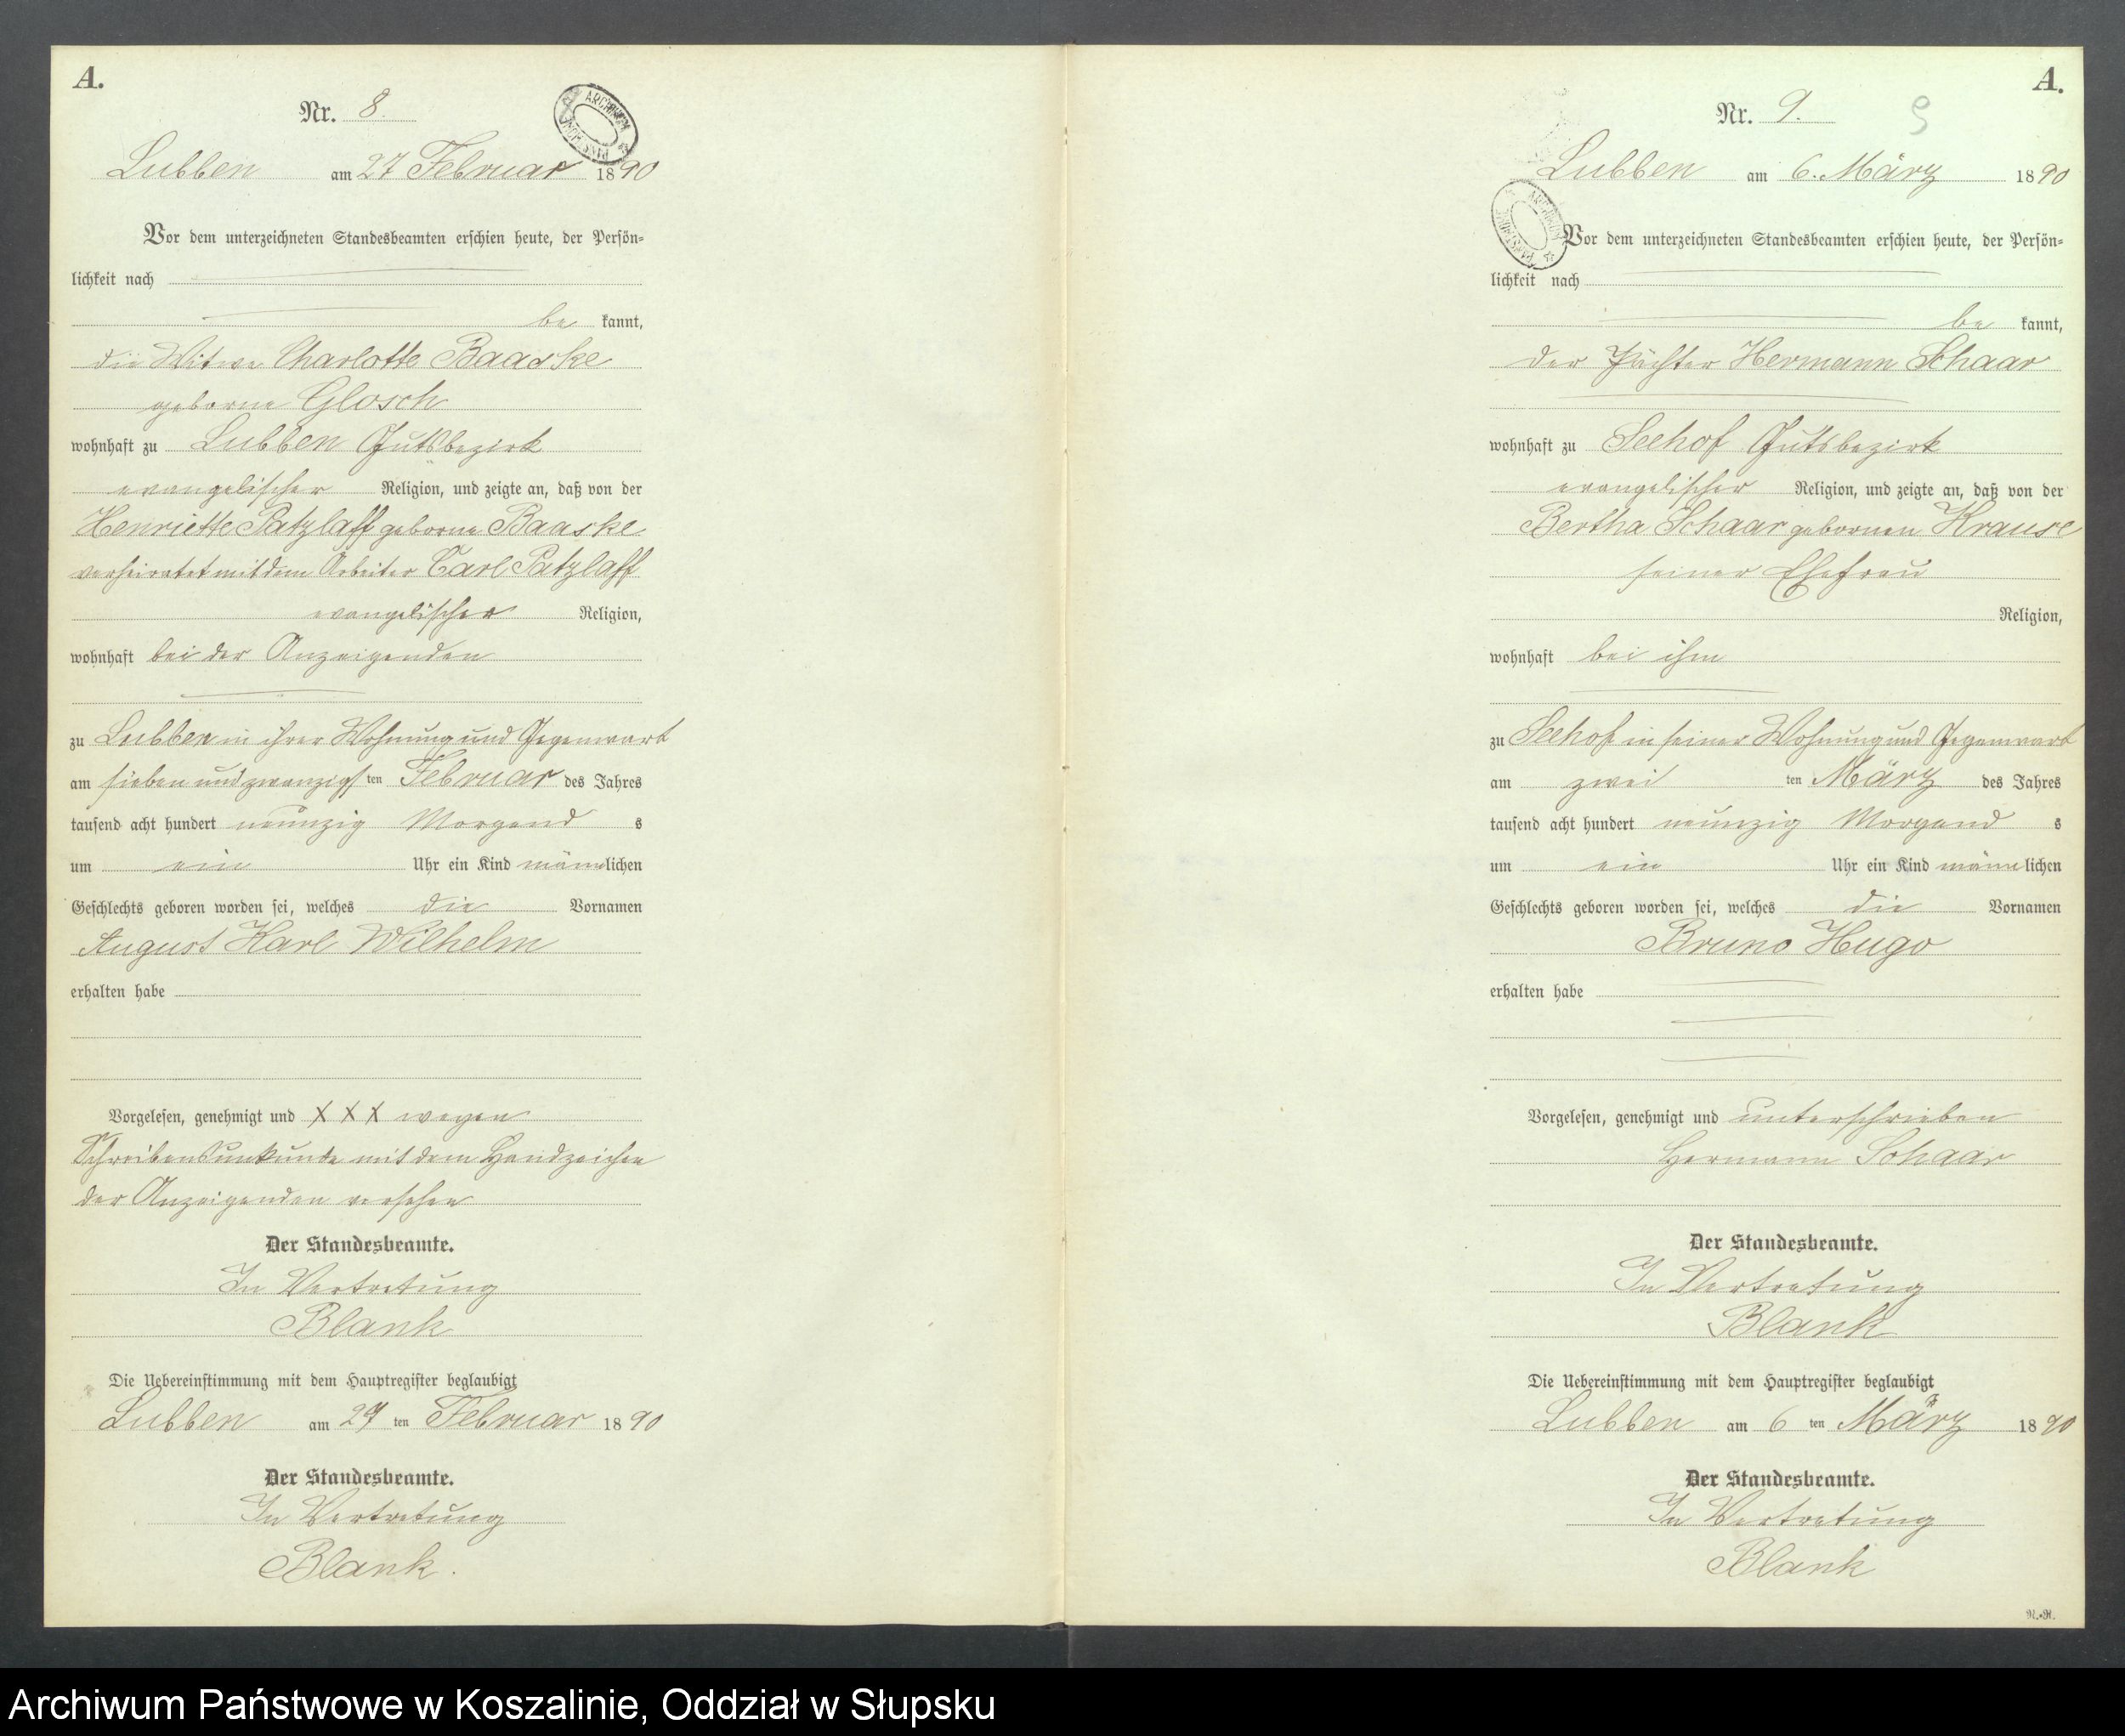 A.
Nr. 8.
ARCHIWUM PAŃSTWOWE
Lubben am 27 Februar 1890
Vor dem unterzeichneten Standesbeamten erschien heute, der Persön-
lichkeit nach
be kannt,
die Witwe Charlotte Baaske
geborne Glosch
wohnhaft zu Lubben Gutsbezirk
evangelischer Religion, und zeigte an, daß von der
Henriette Patzlaff geborne Baaske
verheiratet mit dem Arbeiter Carl Patzlaff
evangelischer Religion,
wohnhaft bei der Anzeigenden
zu Lubben in ihrer Wohnung und Gegenwart
am sieben und zwanzigsten Februar des Jahres
tausend acht hundert neunzig Morgends
um ein Uhr ein Kind männlichen
Geschlechts geboren worden sei, welches die Vornamen
August Karl Wilhelm
erhalten habe
Vorgelesen, genehmigt und XXX wegen
Schreibensunkunde mit dem Handzeichen
der Anzeigenden versehen
Der Standesbeamte.
In Vertretung
Blank
Die Uebereinstimmung mit dem Hauptregister beglaubigt
Lubben am 27 ten Februar 1890
Der Standesbeamte.
In Vertretung
Blank.
A.
Nr. 9.
9
Lubben am 6. März 1890
Vor dem unterzeichneten Standesbeamten erschien heute, der Persön-
lichkeit nach
be kannt,
der Pächter Hermann Schaar
wohnhaft zu Seehof Gutsbezirk
evangelischer Religion, und zeigte an, daß von der
Bertha Schaar gebornen Krause
seiner Ehefrau
Religion,
wohnhaft bei ihm
zu Seehof in seiner Wohnung und Gegenwart
am zwei ten März des Jahres
tausend acht hundert neunzig Morgends
um ein Uhr ein Kind männlichen
Geschlechts geboren worden sei, welches die Vornamen
Bruno Hugo
erhalten habe
Vorgelesen, genehmigt und unterschrieben
Hermann Schaar
Der Standesbeamte.
In Vertretung
Blank
Die Uebereinstimmung mit dem Hauptregister beglaubigt
Lubben am 6 ten März 1890
Der Standesbeamte.
In Vertretung
Blank
R.-R.
Archiwum Państwowe w Koszalinie, Oddział w Słupsku